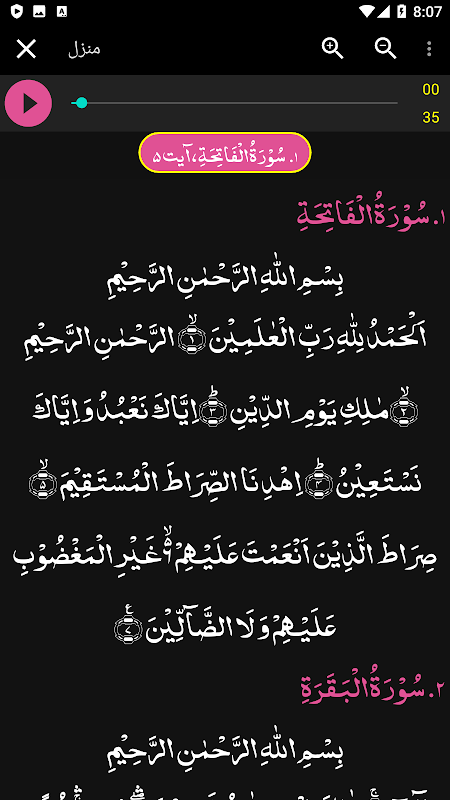 8:07
منزل
00
35
۱. سُوْرَۃُ الْفَاتِحَۃِ، آیت ۵
۱. سُوْرَۃُ الْفَاتِحَۃِ
بِسْمِ اللّٰهِ الرَّحْمٰنِ الرَّحِيْمِ
اَلْحَمْدُ لِلّٰهِ رَبِّ الْعٰلَمِيْنَ ۙ﴿۱﴾ الرَّحْمٰنِ الرَّحِيْمِ
ۙ﴿۲﴾ مٰلِكِ يَوْمِ الدِّيْنِ ؕ﴿۳﴾ اِيَّاكَ نَعْبُدُ وَ اِيَّاكَ
نَسْتَعِيْنُ ؕ﴿۴﴾ اِهْدِنَا الصِّرَاطَ الْمُسْتَقِيْمَ ۙ﴿۵﴾
صِرَاطَ الَّذِيْنَ اَنْعَمْتَ عَلَيْهِمْ ۙ۬ۦ غَيْرِ الْمَغْضُوْبِ
عَلَيْهِمْ وَ لَا الضَّآلِّيْنَ ﴿۷﴾
۲. سُوْرَۃُ الْبَقَرَۃِ
بِسْمِ اللّٰهِ الرَّحْمٰنِ الرَّحِيْمِ